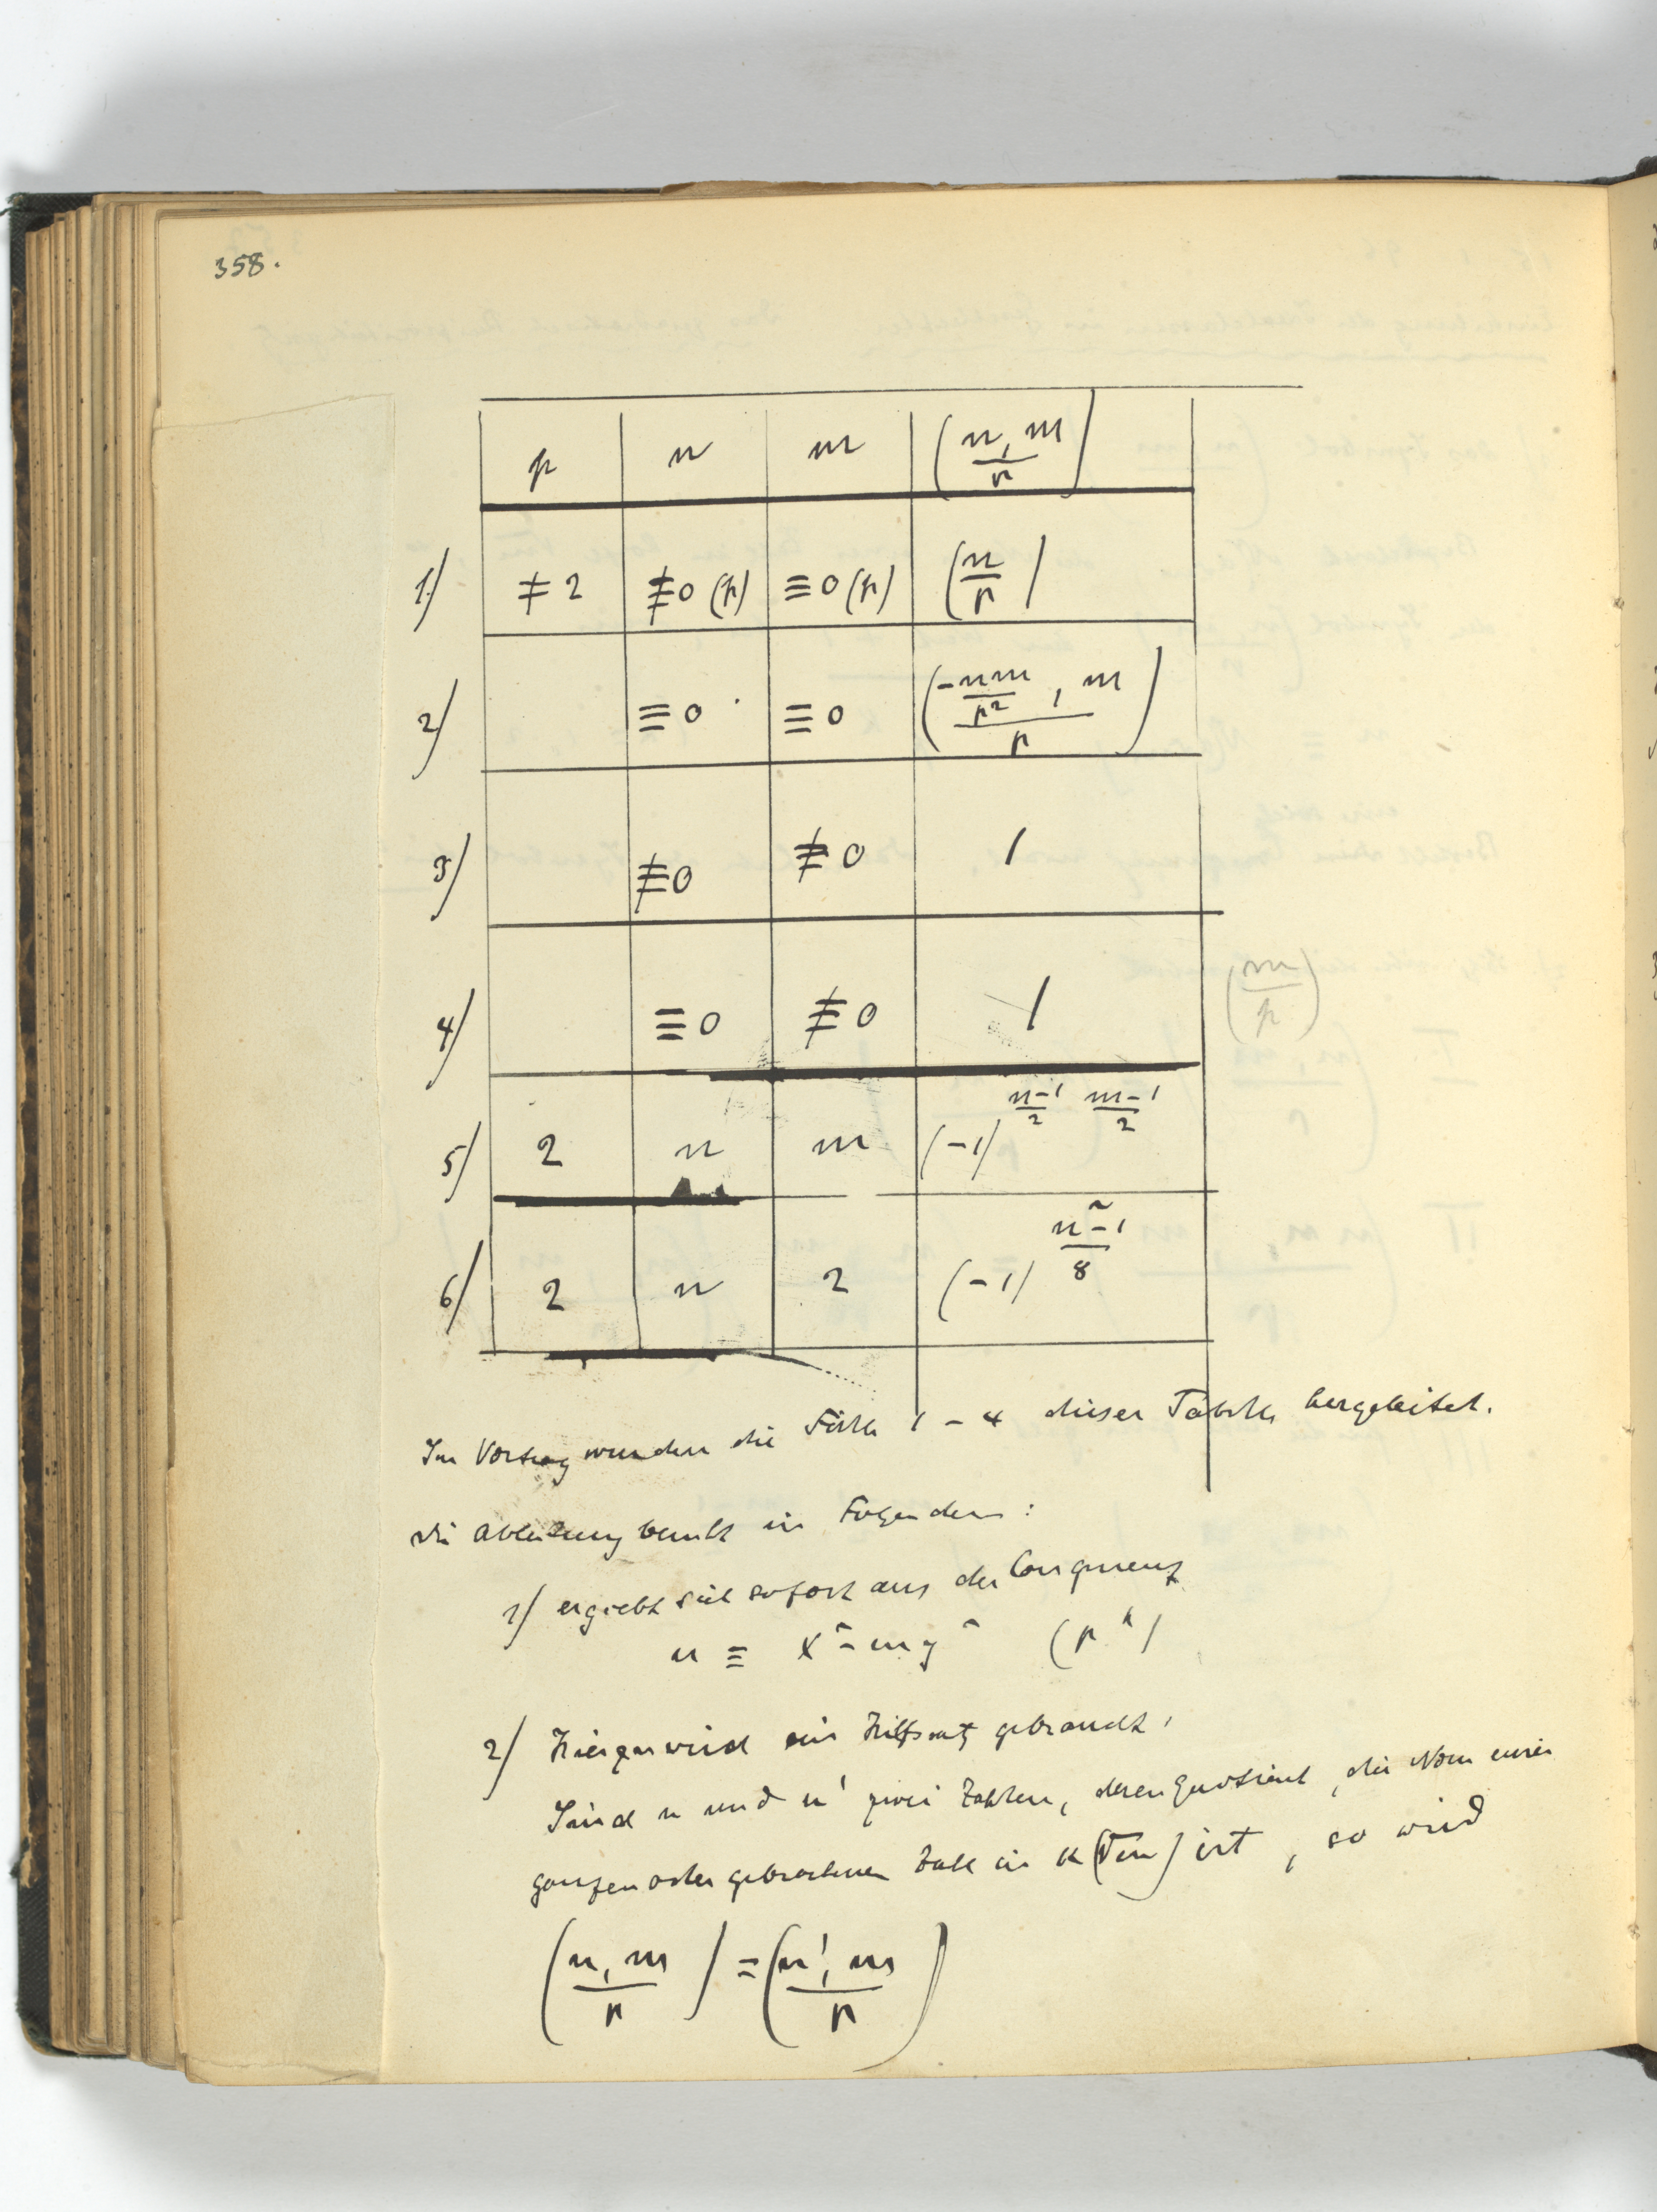 358.
p n m (n, m / p)
1) ≠ 2 ≢0 (p) ≡0 (p) (n/p)
2) ≡0 ≡0 (-nm/p², m / p)
3) ≢0 ≢0 1
4) ≡0 ≢0 1 (m/p)
5) 2 n m (-1)^{n-1/2 m-1/2}
6) 2 n 2 (-1)^{n²-1/8}
Im Vortrag wurden die Fälle 1-4 dieser Tabelle hergeleitet.
Die Ableitung beruht in Folgendem:
1) ergiebt sich sofort aus der Congruenz
n ≡ x²-my² (p^k)
2) Hierzu wird ein Hilfssatz gebraucht,
Sind n und n' zwei Zahlen, deren Quotient, die Norm einer
ganzen oder gebrochenen Zahl in k(√m) ist, so wird
(n, m / p) = (n', m / p)